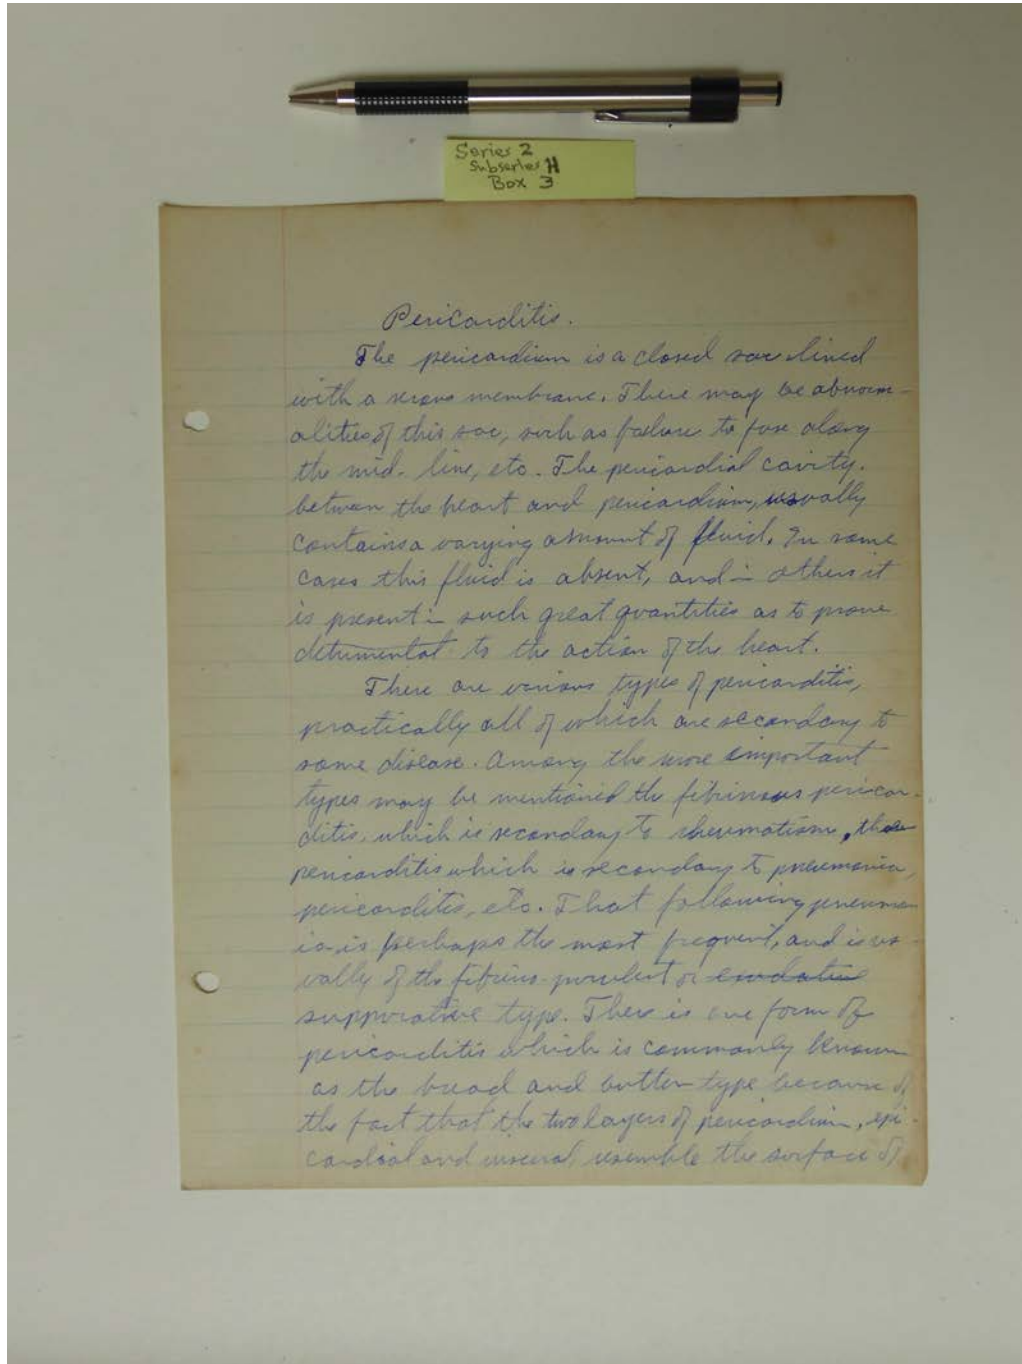 Series 2
Subseries H
Box 3
Pericarditis.
The pericardium is a closed sac lined
with a serous membrane. There may be abnorm-
alities of this sac, such as failure to fuse along
the mid-line, etc. The pericardial cavity.
between the heart and pericardium, usually
contains a varying amount of fluid. In some
cases this fluid is absent, and in others it
is present in such great quantities as to prove
detrimental to the action of the heart.
There are various types of pericarditis,
practically all of which are secondary to
some disease. Among the more important
types may be mentioned the fibrinous pericar-
ditis, which is secondary to rheumatism, the
pericarditis which is secondary to pneumonia,
pericarditis, etc. That following pneumon
ia, is perhaps the most frequent, and is us-
ually of the fibrino-purulent or exudative
suppurative type. There is one form of
pericarditis which is commonly known
as the bread and butter type because of
the fact that the two layers of pericardium, epi-
cardial and visceral, resemble the surface of